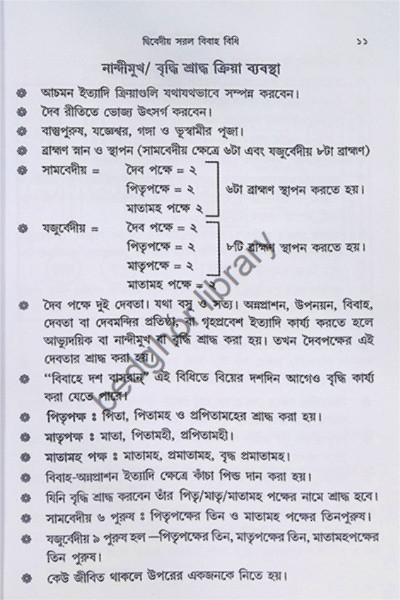 দ্বিবেদীয় সরল বিবাহ বিধি ১১
নান্দীমুখ/ বৃদ্ধি শ্রাদ্ধ ক্রিয়া ব্যবস্থা
আচমন ইত্যাদি ক্রিয়াগুলি যথাযথভাবে সম্পন্ন করবেন।
দৈব রীতিতে ভোজ্য উৎসর্গ করবেন।
বাস্তুপুরুষ, যজ্ঞেশ্বর, গঙ্গা ও ভূস্বামীর পূজা।
ব্রাহ্মণ স্নান ও স্থাপন (সামবেদীয় ক্ষেত্রে ৬টা এবং যজুর্বেদীয় ৮টা ব্রাহ্মণ)
সামবেদীয় = দৈব পক্ষে = ২
পিতৃপক্ষে = ২ ৬টা ব্রাহ্মণ স্থাপন করতে হয়।
মাতামহ পক্ষে ২
যজুর্বেদীয় = দৈব পক্ষে = ২
পিতৃপক্ষে = ২ ৮টি ব্রাহ্মণ স্থাপন করতে হয়।
মাতৃপক্ষে = ২
মাতামহ পক্ষে = ২
দৈব পক্ষে দুই দেবতা। যথা বসু ও সত্য। অন্নপ্রাশন, উপনয়ন, বিবাহ,
দেবতা বা দেবমন্দির প্রতিষ্ঠা, বা গৃহপ্রবেশ ইত্যাদি কার্য্য করতে হলে
আভ্যুদয়িক বা নান্দীমুখ বা বৃদ্ধি শ্রাদ্ধ করা হয়। তখন দৈবপক্ষের এই
দেবতার শ্রাদ্ধ করা হয়।
“বিবাহে দশ বাসরান্” এই বিধিতে বিয়ের দশদিন আগেও বৃদ্ধি কার্য্য
করা যেতে পারে।
পিতৃপক্ষ ঃ পিতা, পিতামহ ও প্রপিতামহের শ্রাদ্ধ করা হয়।
মাতৃপক্ষ ঃ মাতা, পিতামহী, প্রপিতামহী।
মাতামহ পক্ষ ঃ মাতামহ, প্রমাতামহ, বৃদ্ধ প্রমাতামহ।
বিবাহ-অন্নপ্রাশন ইত্যাদি ক্ষেত্রে কাঁচা পিন্ড দান করা হয়।
যিনি বৃদ্ধি শ্রাদ্ধ করবেন তাঁর পিতৃ/মাতৃ/মাতামহ পক্ষের নামে শ্রাদ্ধ হবে।
সামবেদীয় ৬ পুরুষ ঃ পিতৃপক্ষের তিন ও মাতামহ পক্ষের তিনপুরুষ।
যজুর্বেদীয় ৯ পুরুষ হল —পিতৃপক্ষের তিন, মাতৃপক্ষের তিন, মাতামহপক্ষের
তিন পুরুষ।
কেউ জীবিত থাকলে উপরের একজনকে নিতে হয়।
bedghor library